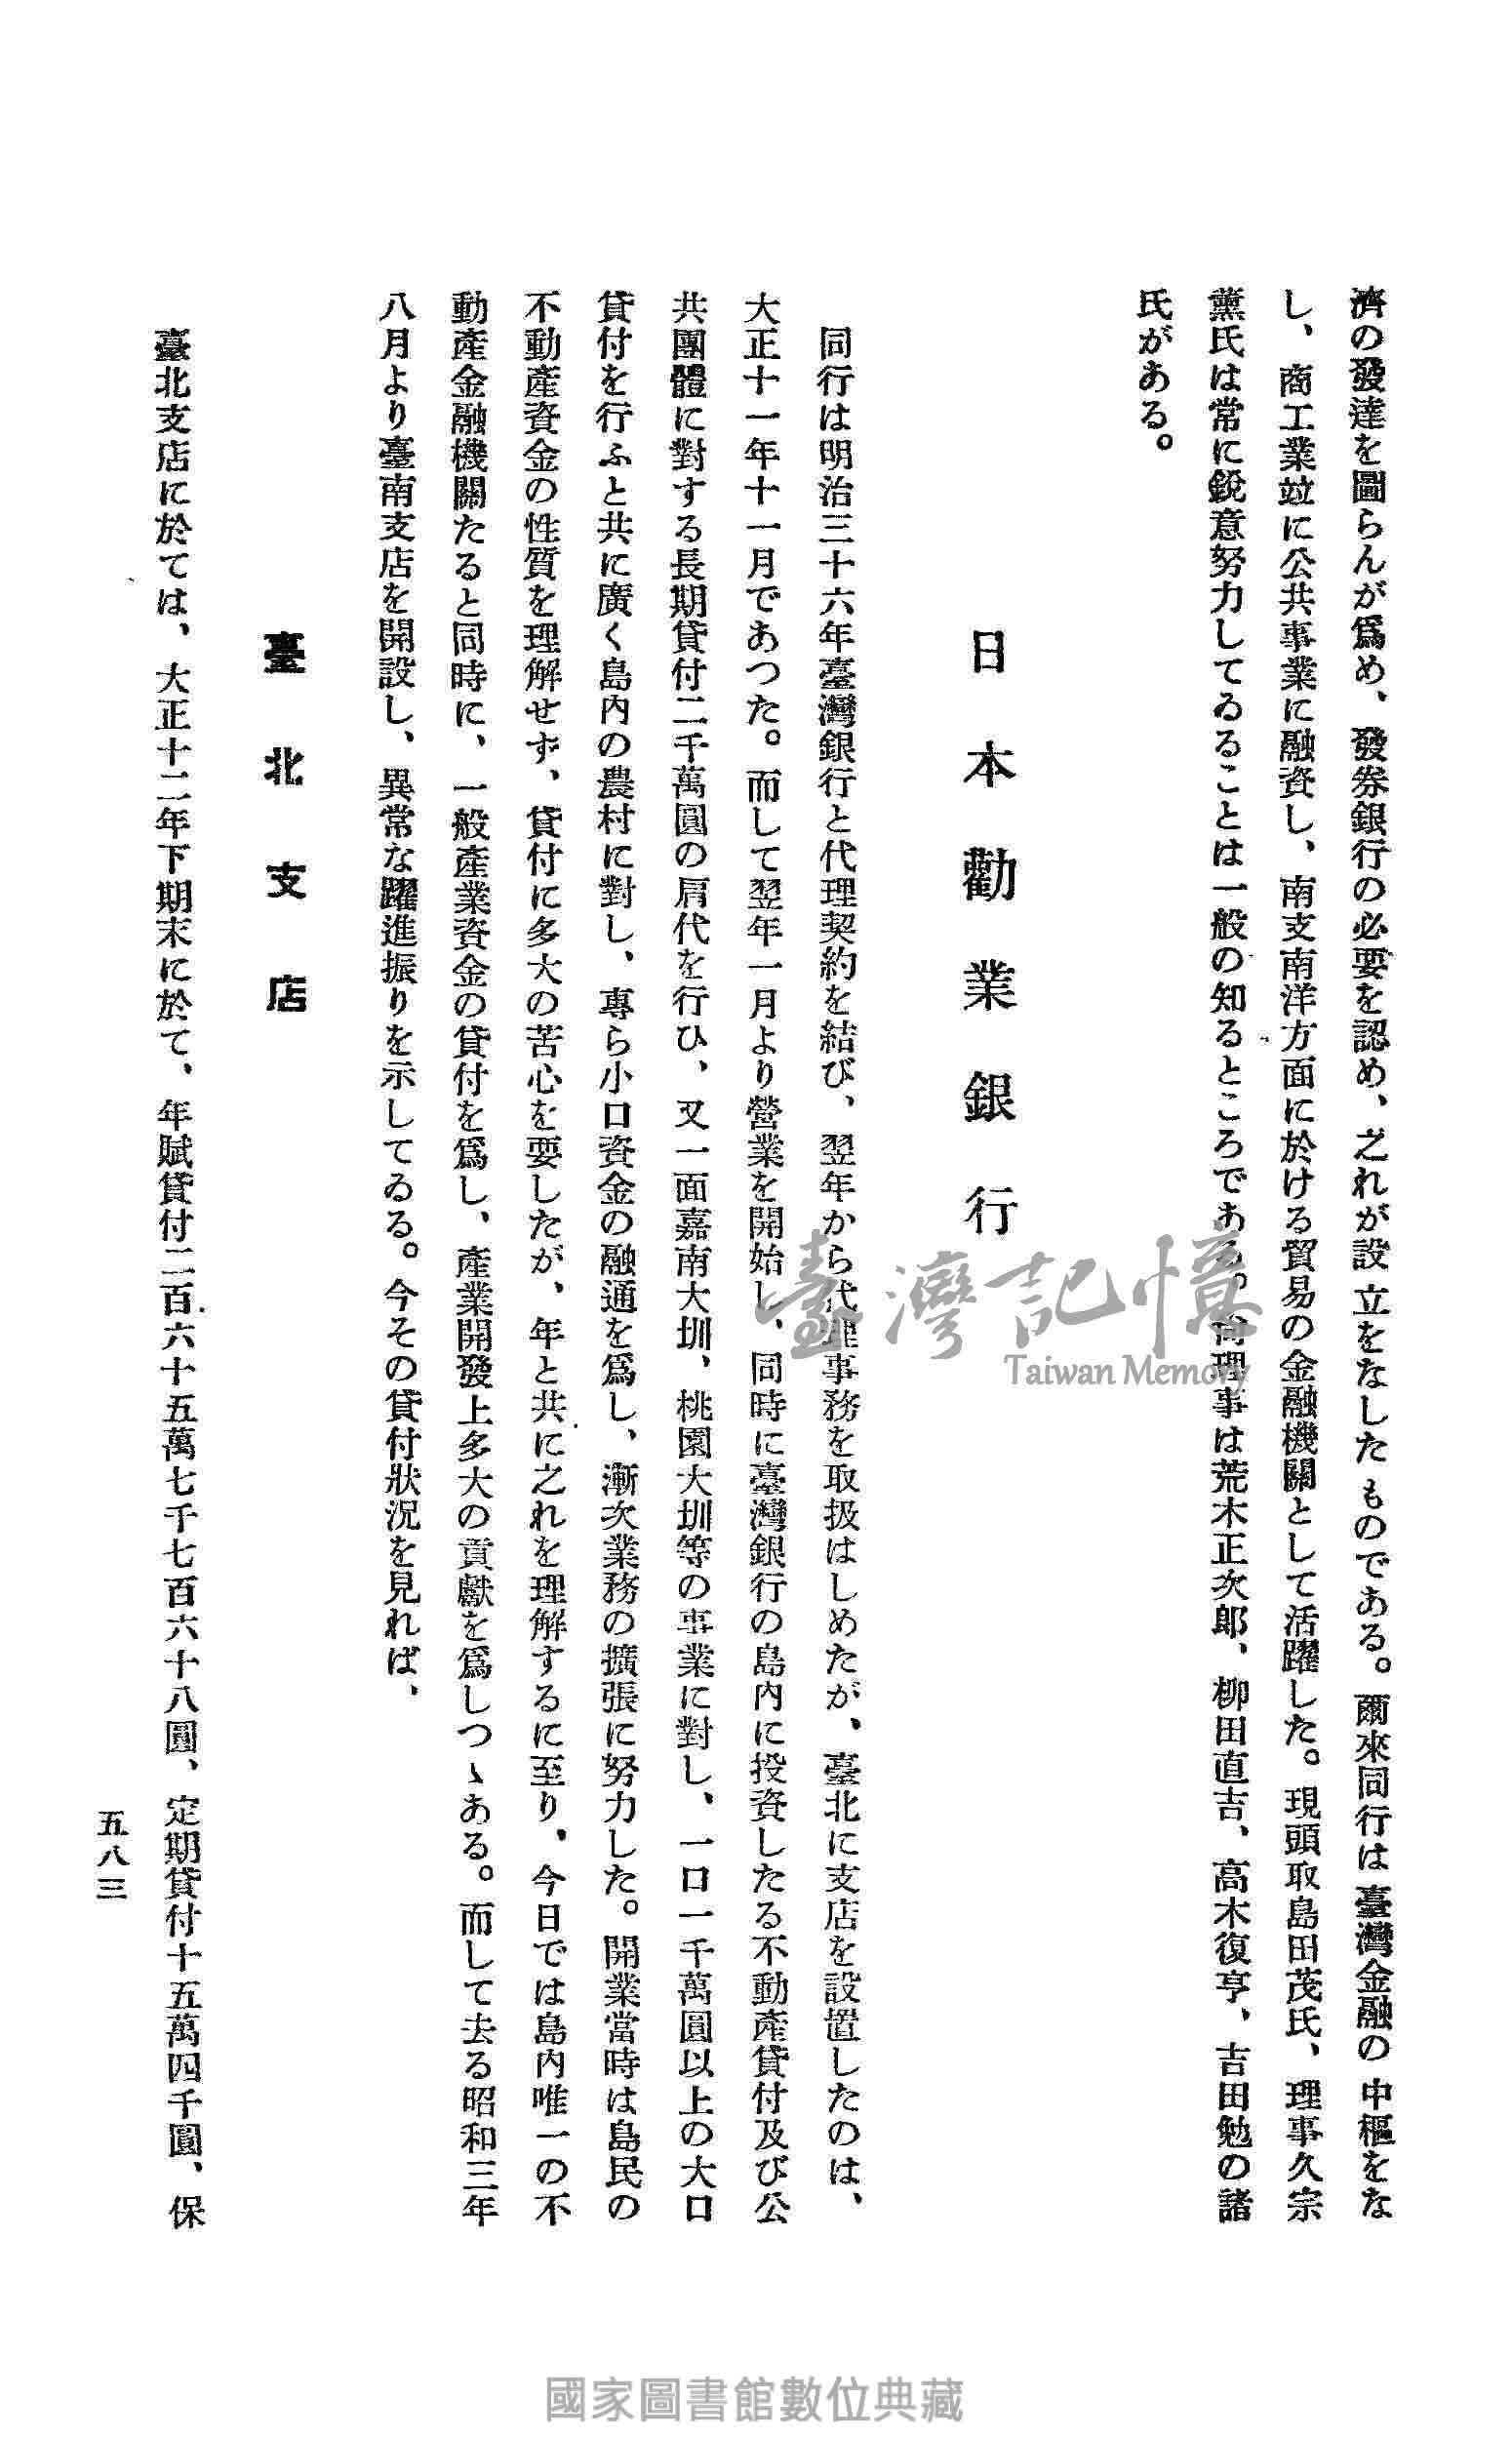 濟の發達を圖らんが爲め、發券銀行の必要を認め、之れが設立をなしたものである。爾來同行は臺灣金融の中樞をな
し、商工業竝に公共事業に融資し、南支南洋方面に於ける貿易の金融機關として活躍した。現頭取島田茂氏、理事久宗
薫氏は常に銳意努力してゐることは一般の知るところである。尙理事は荒木正次郎、柳田直吉、高木復亨、吉田勉の諸
氏がある。
日本勸業銀行
同行は明治三十六年臺灣銀行と代理契約を結び、翌年から代理事務を取扱はしめたが、臺北に支店を設置したのは、
大正十一年十一月であつた。而して翌年一月より營業を開始し、同時に臺灣銀行の島內に投資したる不動產貸付及び公
共團體に對する長期貸付二千萬圓の肩代を行ひ、又一面嘉南大圳、桃園大圳等の事業に對し、一口一千萬圓以上の大口
貸付を行ふと共に廣く島內の農村に對し、專ら小口資金の融通を爲し、漸次業務の擴張に努力した。開業當時は島民の
不動產資金の性質を理解せず、貸付に多大の苦心を要したが、年と共に之れを理解するに至り、今日では島內唯一の不
動產金融機關たると同時に、一般產業資金の貸付を爲し、產業開發上多大の貢獻を爲しつゝある。而して去る昭和三年
八月より臺南支店を開設し、異常な躍進振りを示してゐる。今その貸付狀況を見れば、
臺北支店
臺北支店に於ては、大正十二年下期末に於て、年賦貸付二百六十五萬七千七百六十八圓、定期貸付十五萬四千圓、保
五八三
臺灣記憶
Taiwan Memory
國家圖書館數位典藏